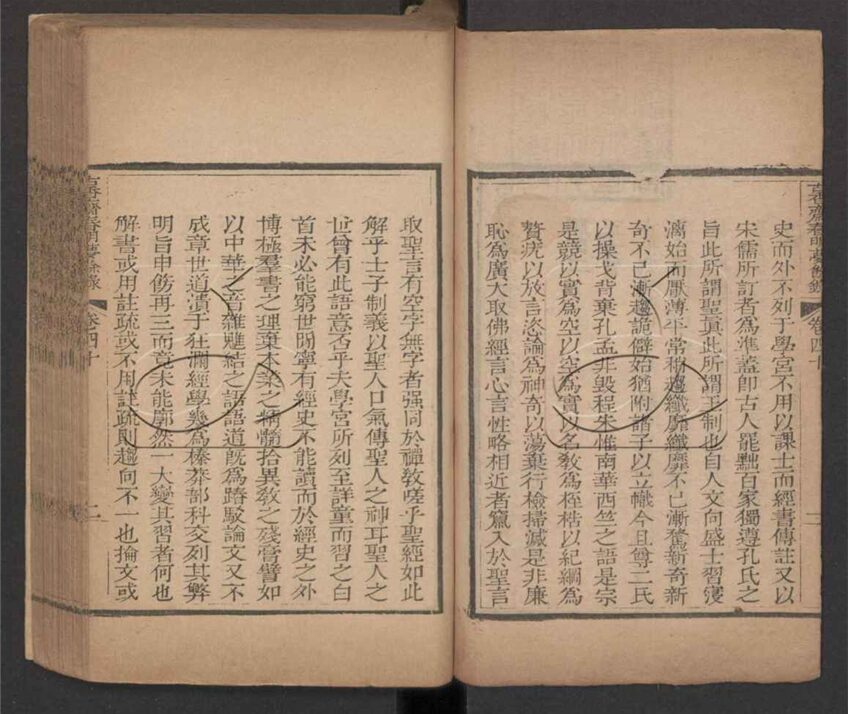 史而外不列于學宮不用以課士而經書傳註又以
宋儒所訂者為準葢卽古人罷黜百家獨遵孔氏之
旨此所謂聖眞此所謂王制也自人文向盛士習寖
漓始而厭薄平常稍趨纖靡纖靡不已漸騖新奇新
奇不已漸趨詭僻始猶附諸子以立幟今且尊二氏
以操戈背棄孔孟非毀程朱惟南華西竺之語是宗
是競以實為空以空為實以名敎為桎梏以紀綱為
贅疣以放言恣論為神奇以蕩棄行檢掃滅是非廉
恥為廣大取佛經言心言性略相近者竄入於聖言
取聖言有空字無字者强同於禪敎嗟乎聖經如此
解乎士子制義以聖人口氣傳聖人之神耳聖人之
世曾有此語意否乎夫學宮所列至詳童而習之白
首未必能窮世間寧有經史不能讀而於經史之外
博極羣書之理棄本業之精髓拾異敎之殘膏譬如
以中華之音雜魋結之語語道旣為踳駁論文又不
成章世道潰于狂瀾經學幾為榛莽部科交列其弊
明旨申飭再三而竟未能廓然一大變其習者何也
解書或用註疏或不用註疏則趨向不一也掄文或
古香齋春明夢餘錄 卷四十 二